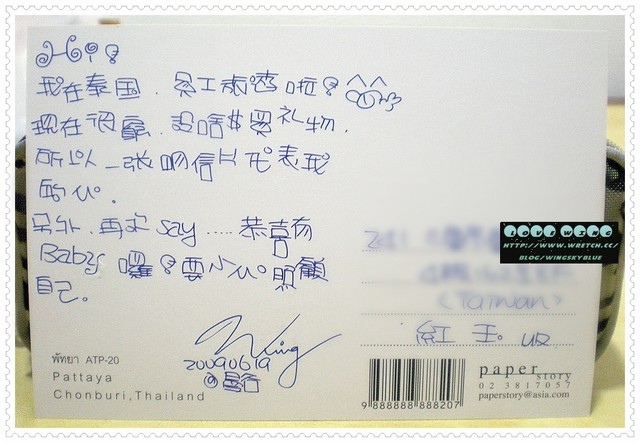 Hi!
我在泰国.
现在很窮.沒啥$買礼物.
所以一张明信片代表我
的心.
另外.再次say.....恭喜有
Baby囉!要小心照顧
自己。
Wing
20090619
@曼谷
พัทยา ATP-20
Pattaya
Chonburi,Thailand
(Taiwan)
紅玉。收
9 888888 888207
paper
story
02 3817057
paperstory@asia.com
WING
HTTP://WWW.WRETCH.CC/
BLOG/WINGSKYBLUE